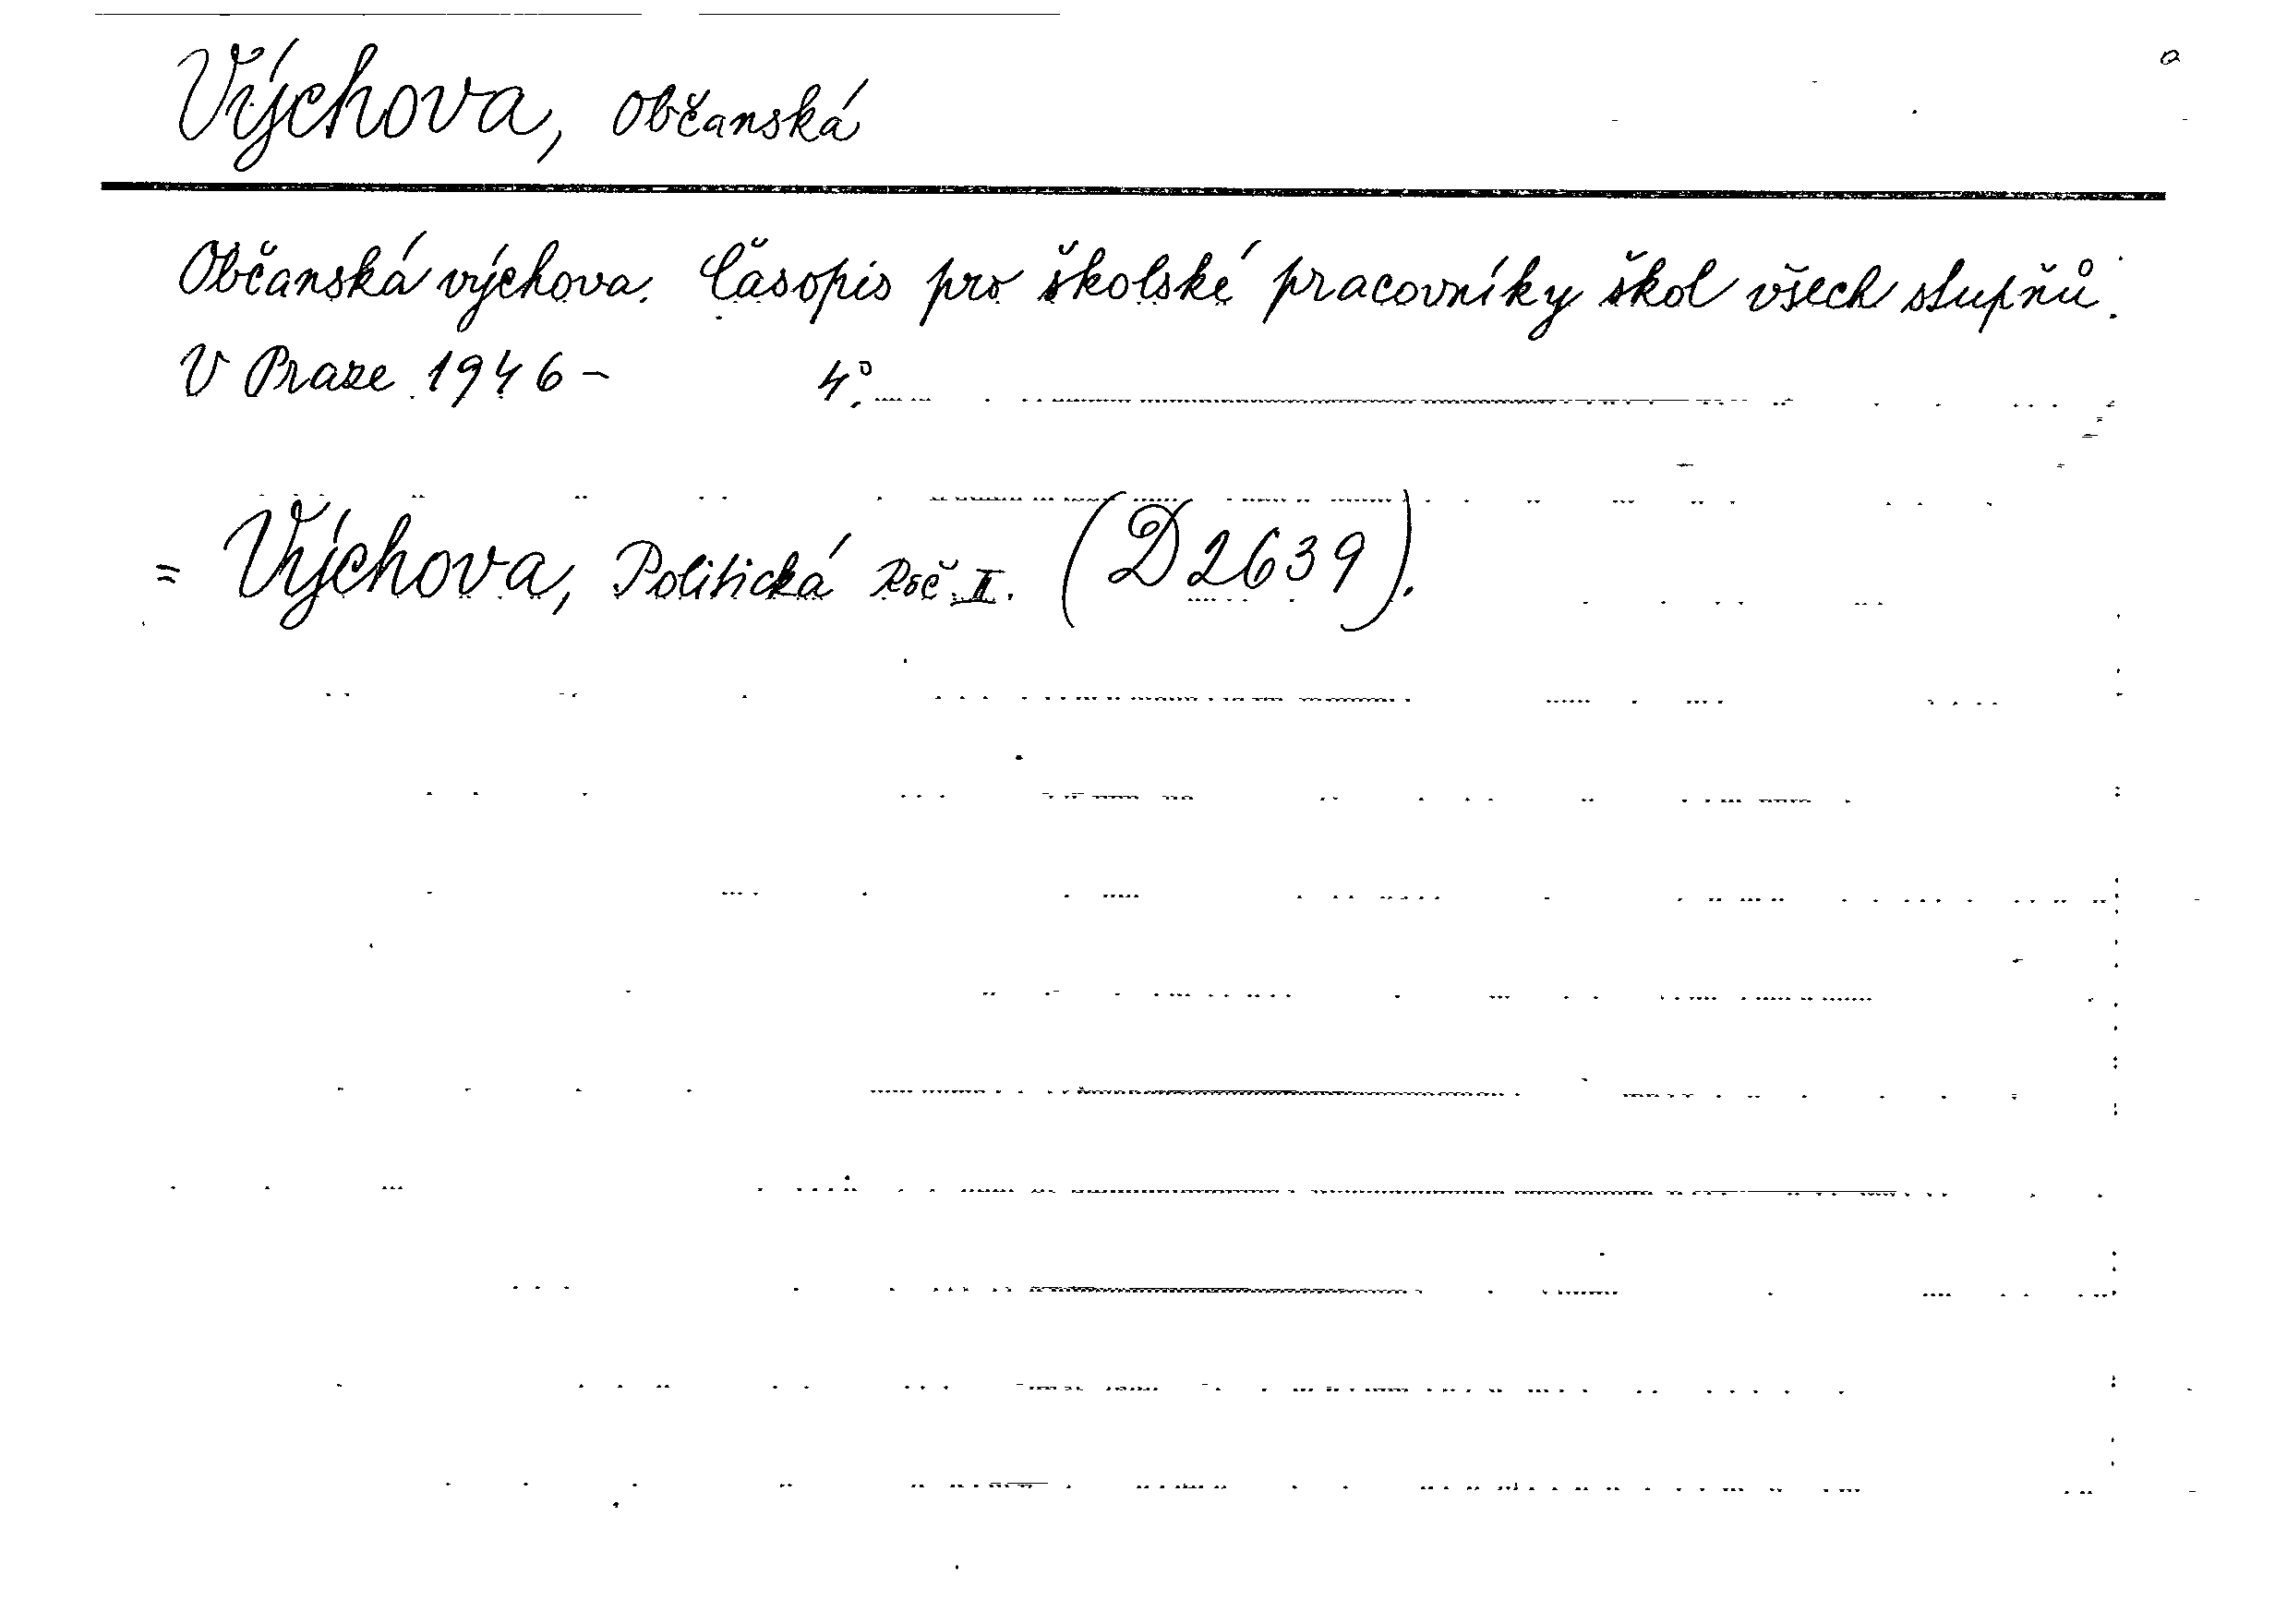 Výchova, Občanská
Občanská výchova. Časopis pro školské pracovníky škol všech stupňů.
V Praze 1946- 4°.
= Výchova, Politická Roč. II. (D2639).